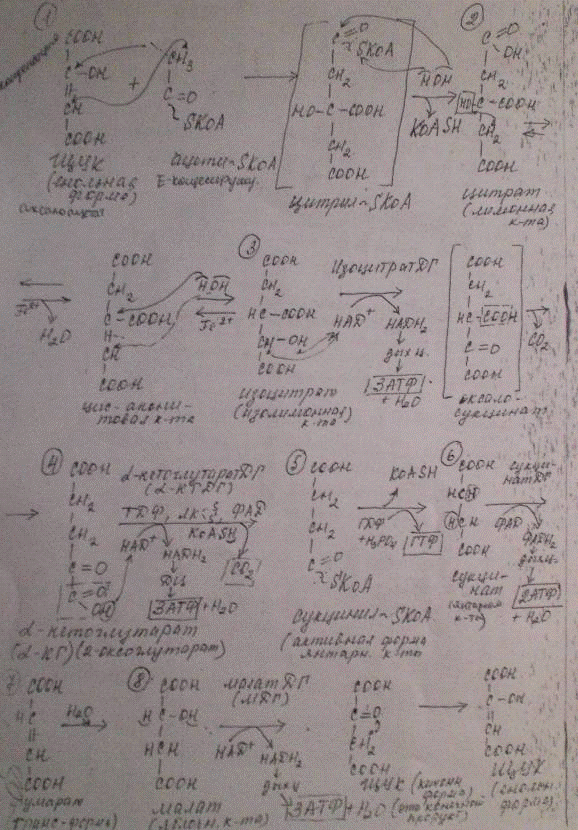 ①
COOH
C-OH
CH
COOH
ЩУК
(енольная
форма)
+
CH3
C=O
SKoA
ацетил~SKoA
C=O
~SKoA
CH2
HO-C-COOH
CH2
COOH
цитрил~SKoA
HOH
KoASH
②
C=O
OH
CH2
HO-C-COOH
CH2
COOH
цитрат
(лимонная
к-та)
Fe2+
H2O
COOH
CH2
C-COOH
CH
COOH
цис-акони-
товая к-та
HOH
Fe2+
③
COOH
CH2
HC-COOH
CH-OH
COOH
изоцитрат
(изолимонная
к-та)
ИзоцитратДГ
НАД+
НАДН2
дых ц.
3АТФ
+ H2O
COOH
CH2
HC-COOH
C=O
COOH
оксало-
сукцинат
CO2
④
COOH
CH2
CH2
C=O
C=O
OH
α-кетоглутарат
(α-КГ)(2-оксоглутарат)
α-кетоглутаратДГ
(α-КГДГ)
ТДФ, ЛК, ФАД
KoASH
НАД+
НАДН2
ДЦ
3АТФ + H2O
CO2
⑤
COOH
CH2
CH2
C=O
~SKoA
сукцинил~SKoA
(активная форма
янтарн. к-ты
KoASH
ГДФ
+H3PO4
ГТФ
⑥
COOH
HCH
HCH
COOH
сукци-
нат
(янтарная
к-та)
сукци-
натДГ
ФАД
ФАДН2
дых ц.
2АТФ
+ H2O
⑦
COOH
HC
CH
COOH
фумарат
(транс-форма)
H2O
⑧
COOH
H C-OH
HCH
COOH
малат
(яблочн. к-та)
малатДГ
(МДГ)
НАД+
НАДН2
дых ц
3АТФ + H2O
COOH
C=O
CH2
COOH
ЩУК
(это конечный
продукт)
COOH
C-OH
CH
COOH
ЩУК
(енольн.
форма)